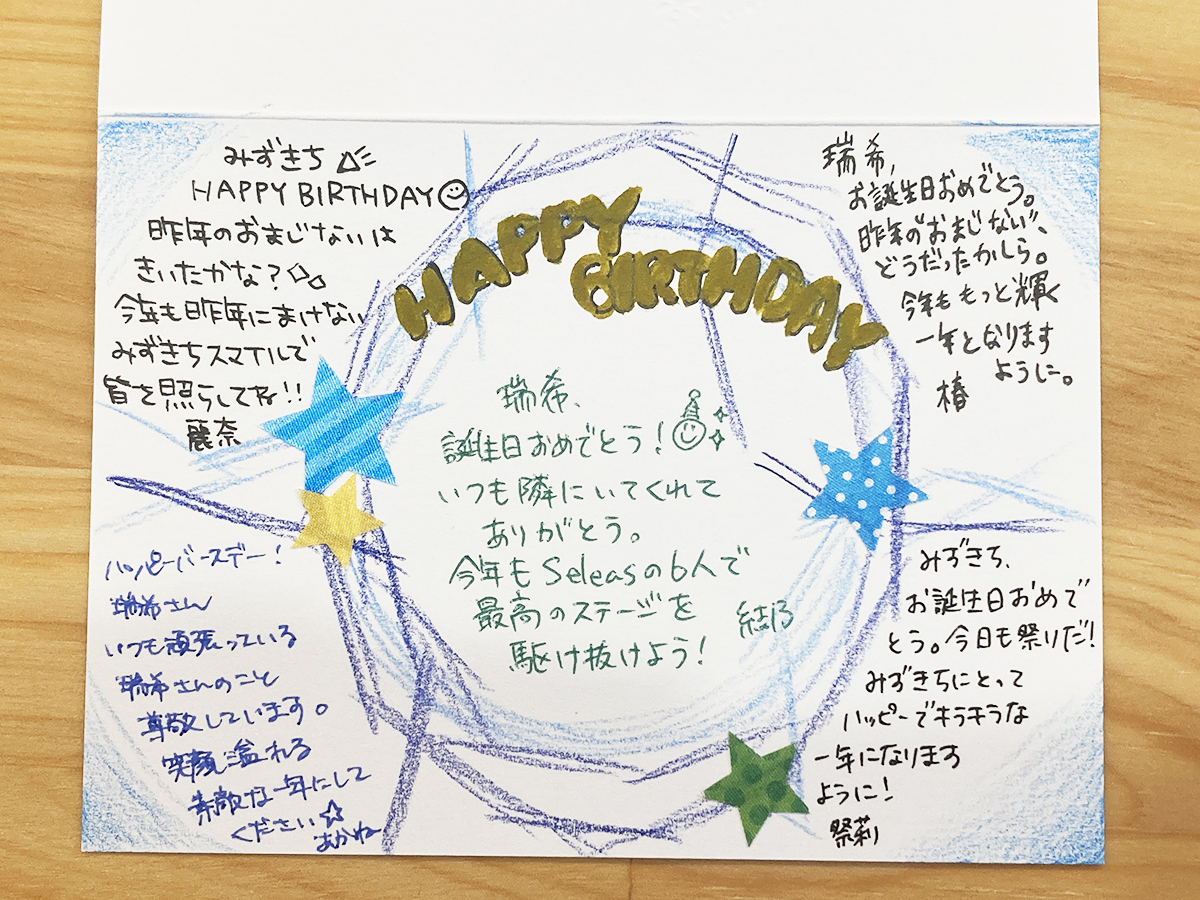 みずきち
HAPPY BIRTHDAY
昨年のおまじないは
きいたかな?
今年も昨年にまけない
みずきちスマイルで
皆を照らしてね!!
麗奈
HAPPY
BIRTHDAY
瑞希,
お誕生日おめでとう。
昨年の"おまじない"、
どうだったかしら。
今年ももっと輝く
一年となります
ように。
椿
瑞希、
誕生日おめでとう!
いつも隣にいてくれて
ありがとう。
今年もSeleasの6人で
最高のステージを
駆け抜けよう!
結乃
ハッピーバースデー!
瑞希さん
いつも頑張っている
瑞希さんのこと
尊敬しています。
笑顔溢れる
素敵な一年にして
ください☆
あかね
みずきち、
お誕生日おめで
とう。今日も祭りだ!
みずきちにとって
ハッピーでキラキラな
一年になります
ように!
祭莉